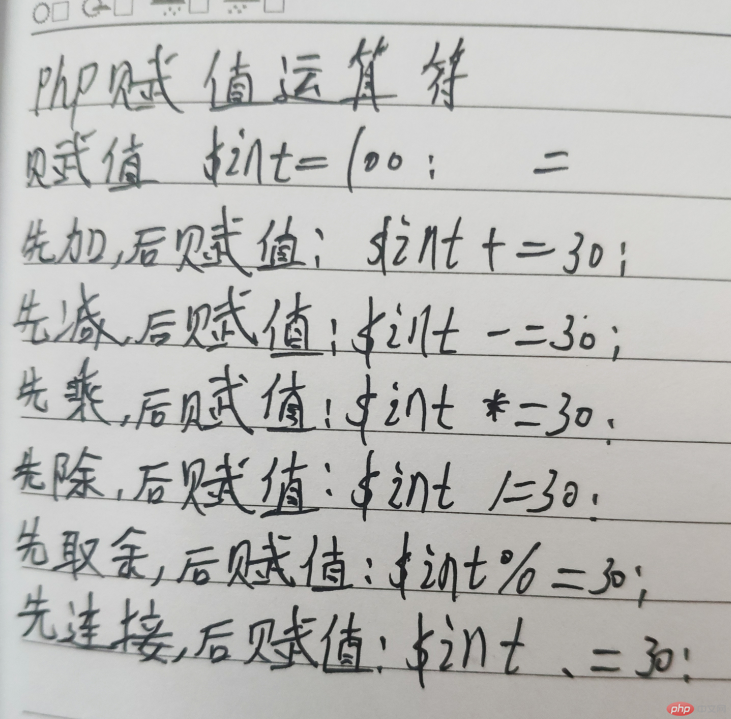 php赋值运算符
赋值 $int=100; =
先加,后赋值: $int +=30;
先减,后赋值:$int -=30;
先乘,后赋值:$int *=30;
先除,后赋值:$int /=30;
先取余,后赋值:$int%=30;
先连接,后赋值:$int .=30;
php